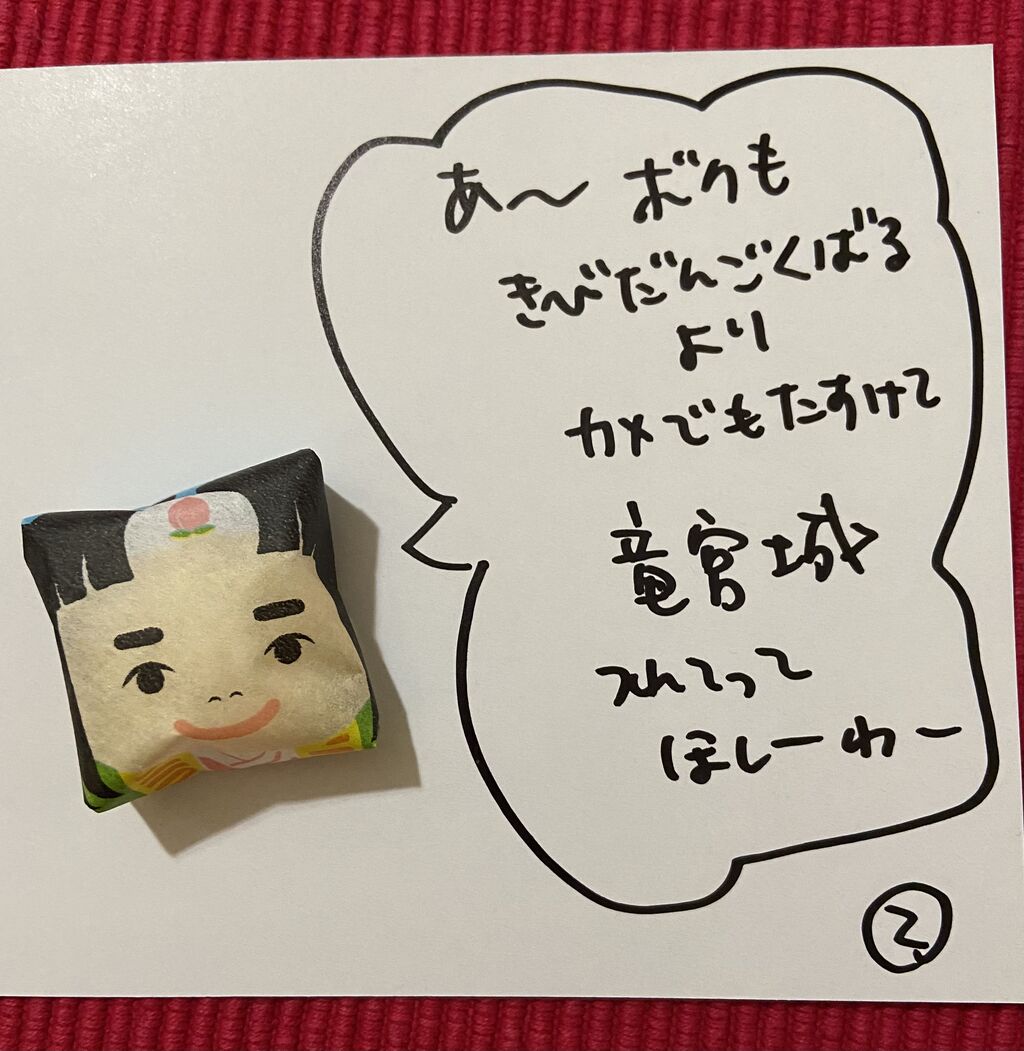 あ〜 ボクも
きびだんごくばる
より
カメでもたすけて
竜宮城
つれてって
ほしーわー
②